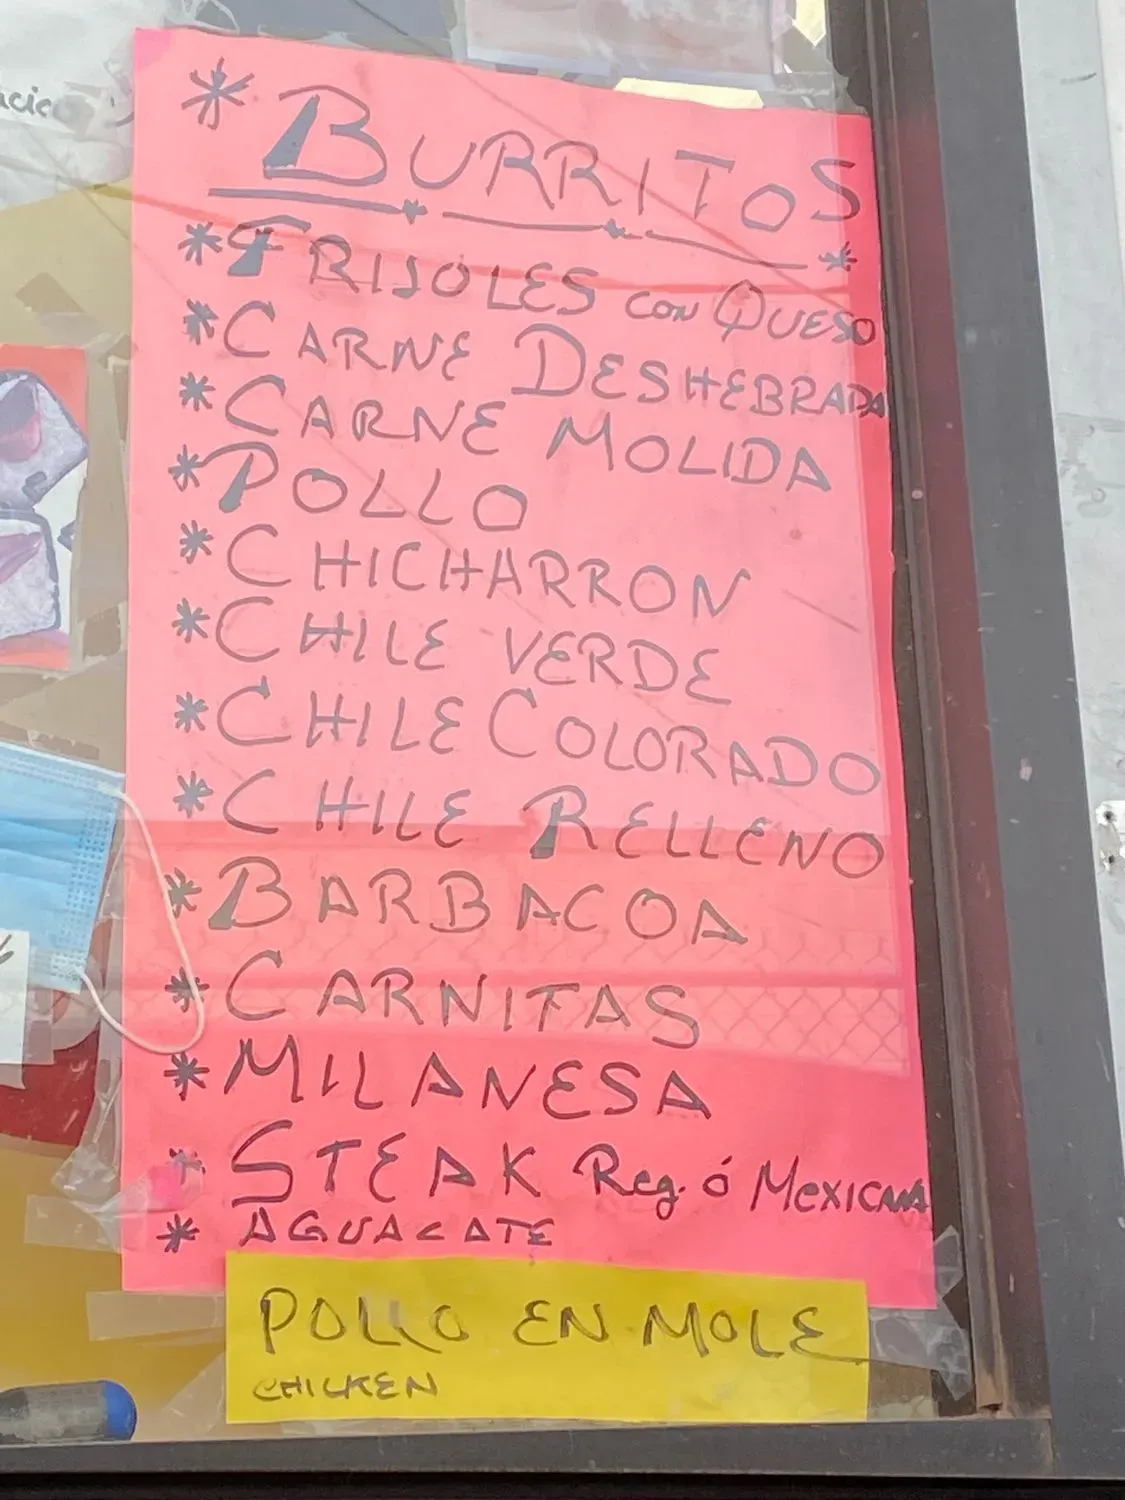 * BURRITOS *
* FRIJOLES CON QUESO
* CARNE DESHEBRADA
* CARNE MOLIDA
* POLLO
* CHICHARRON
* CHILE VERDE
* CHILE COLORADO
* CHILE RELLENO
* BARBACOA
* CARNITAS
* MILANESA
* STEAK Reg. ó MEXICANA
* AGUACATE
POLLO EN MOLE
CHICKEN